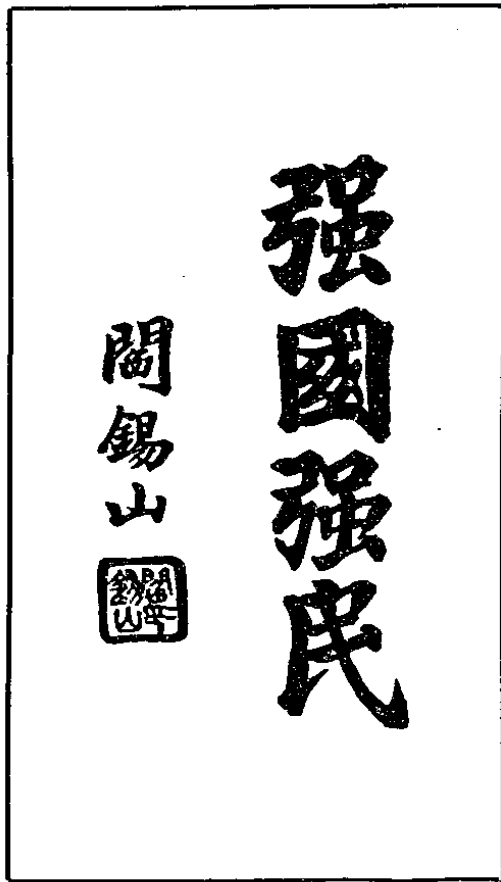 强國强民
閻錫山
閻錫山印